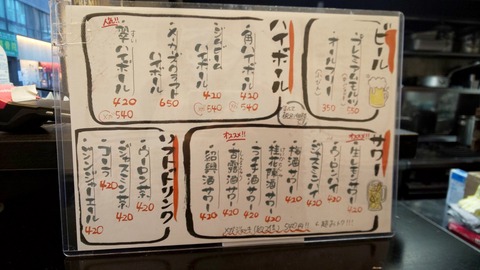 ビール
プレミアムモルツ
550
オールフリー
350
ハイボール
角ハイボール
420
540
ジムビーム
ハイボール
420
540
メーカーズマーク
ハイボール
650
人気!!
翠ハイボール
420
540
サワー
オススメ!!
レモンサワー
420
ウーロンハイ
420
ジャスミンハイ
420
桂花陳酒サワー
420
梅酒サワー
420
ライチ酒サワー
420
オススメ!!
杏露酒サワー
420
紹興酒サワー
420
ソフトドリンク
ウーロン茶
420
ジャスミン茶
420
コーラ
420
ジンジャーエール
420